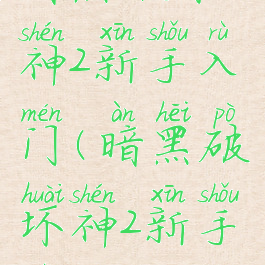 shén xīn shǒu rù
神2新手入
mén àn hēi pò
门(暗黑破
huài shén xīn shǒu
坏神2新手